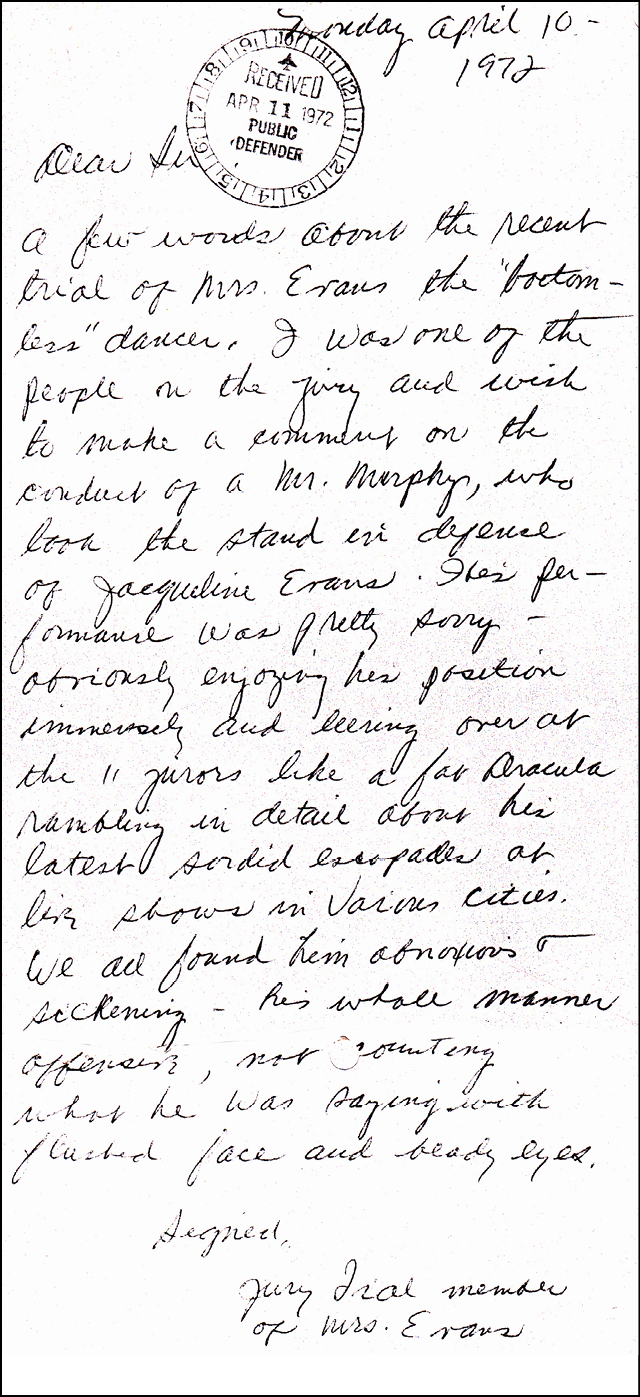 Monday April 10 -
1972
9 10 11 12 1 2 3 4 5 6 7 8
RECEIVED
APR 11 1972
PUBLIC
DEFENDER
Dear Sir
a few words about the recent
trial of Mrs. Evans the "bottom-
less" dancer. I was one of the
people on the jury and wish
to make a comment on the
conduct of a Mr. Murphy, who
took the stand in defense
of Jacqueline Evans. His per-
formance was pretty sorry -
obviously enjoying his position
immensely and leering over at
the 11 jurors like a fat Dracula
rambling in detail about his
latest sordid escapades at
live shows in various cities.
We all found him obnoxious &
sickening - his whole manner
offensive, not counting
what he was saying with
flushed face and beady eyes.
Signed,
Jury Trial member
of Mrs. Evans